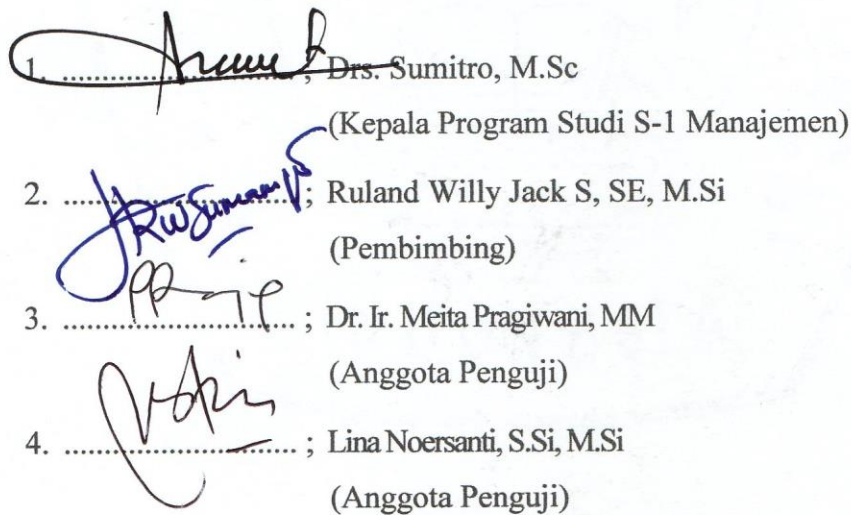 1. ................................ ; Drs. Sumitro, M.Sc
(Kepala Program Studi S-1 Manajemen)
2. ................................ ; Ruland Willy Jack S, SE, M.Si
(Pembimbing)
3. ................................ ; Dr. Ir. Meita Pragiwani, MM
(Anggota Penguji)
4. ................................ ; Lina Noersanti, S.Si, M.Si
(Anggota Penguji)